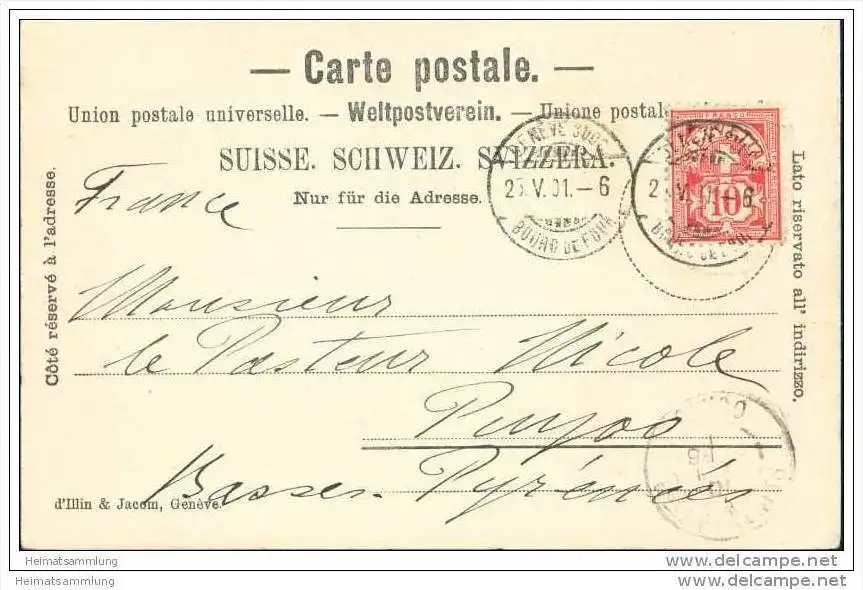 — Carte postale. —
Union postale universelle. — Weltpostverein. — Unione postale
SUISSE. SCHWEIZ. SVIZZERA.
Nur für die Adresse.
Côté réservé à l'adresse.
Lato riservato all' indirizzo.
GENÈVE SUCC
V.01.-6
BOURG DE FOUR
10
France
Monsieur
le Pasteur Nicole
Puyoo
Basses-Pyrénées
d'Illin & Jacom, Genève.
Heimatsammlung
Heimatsammlung
delcampe.net
delcampe.net